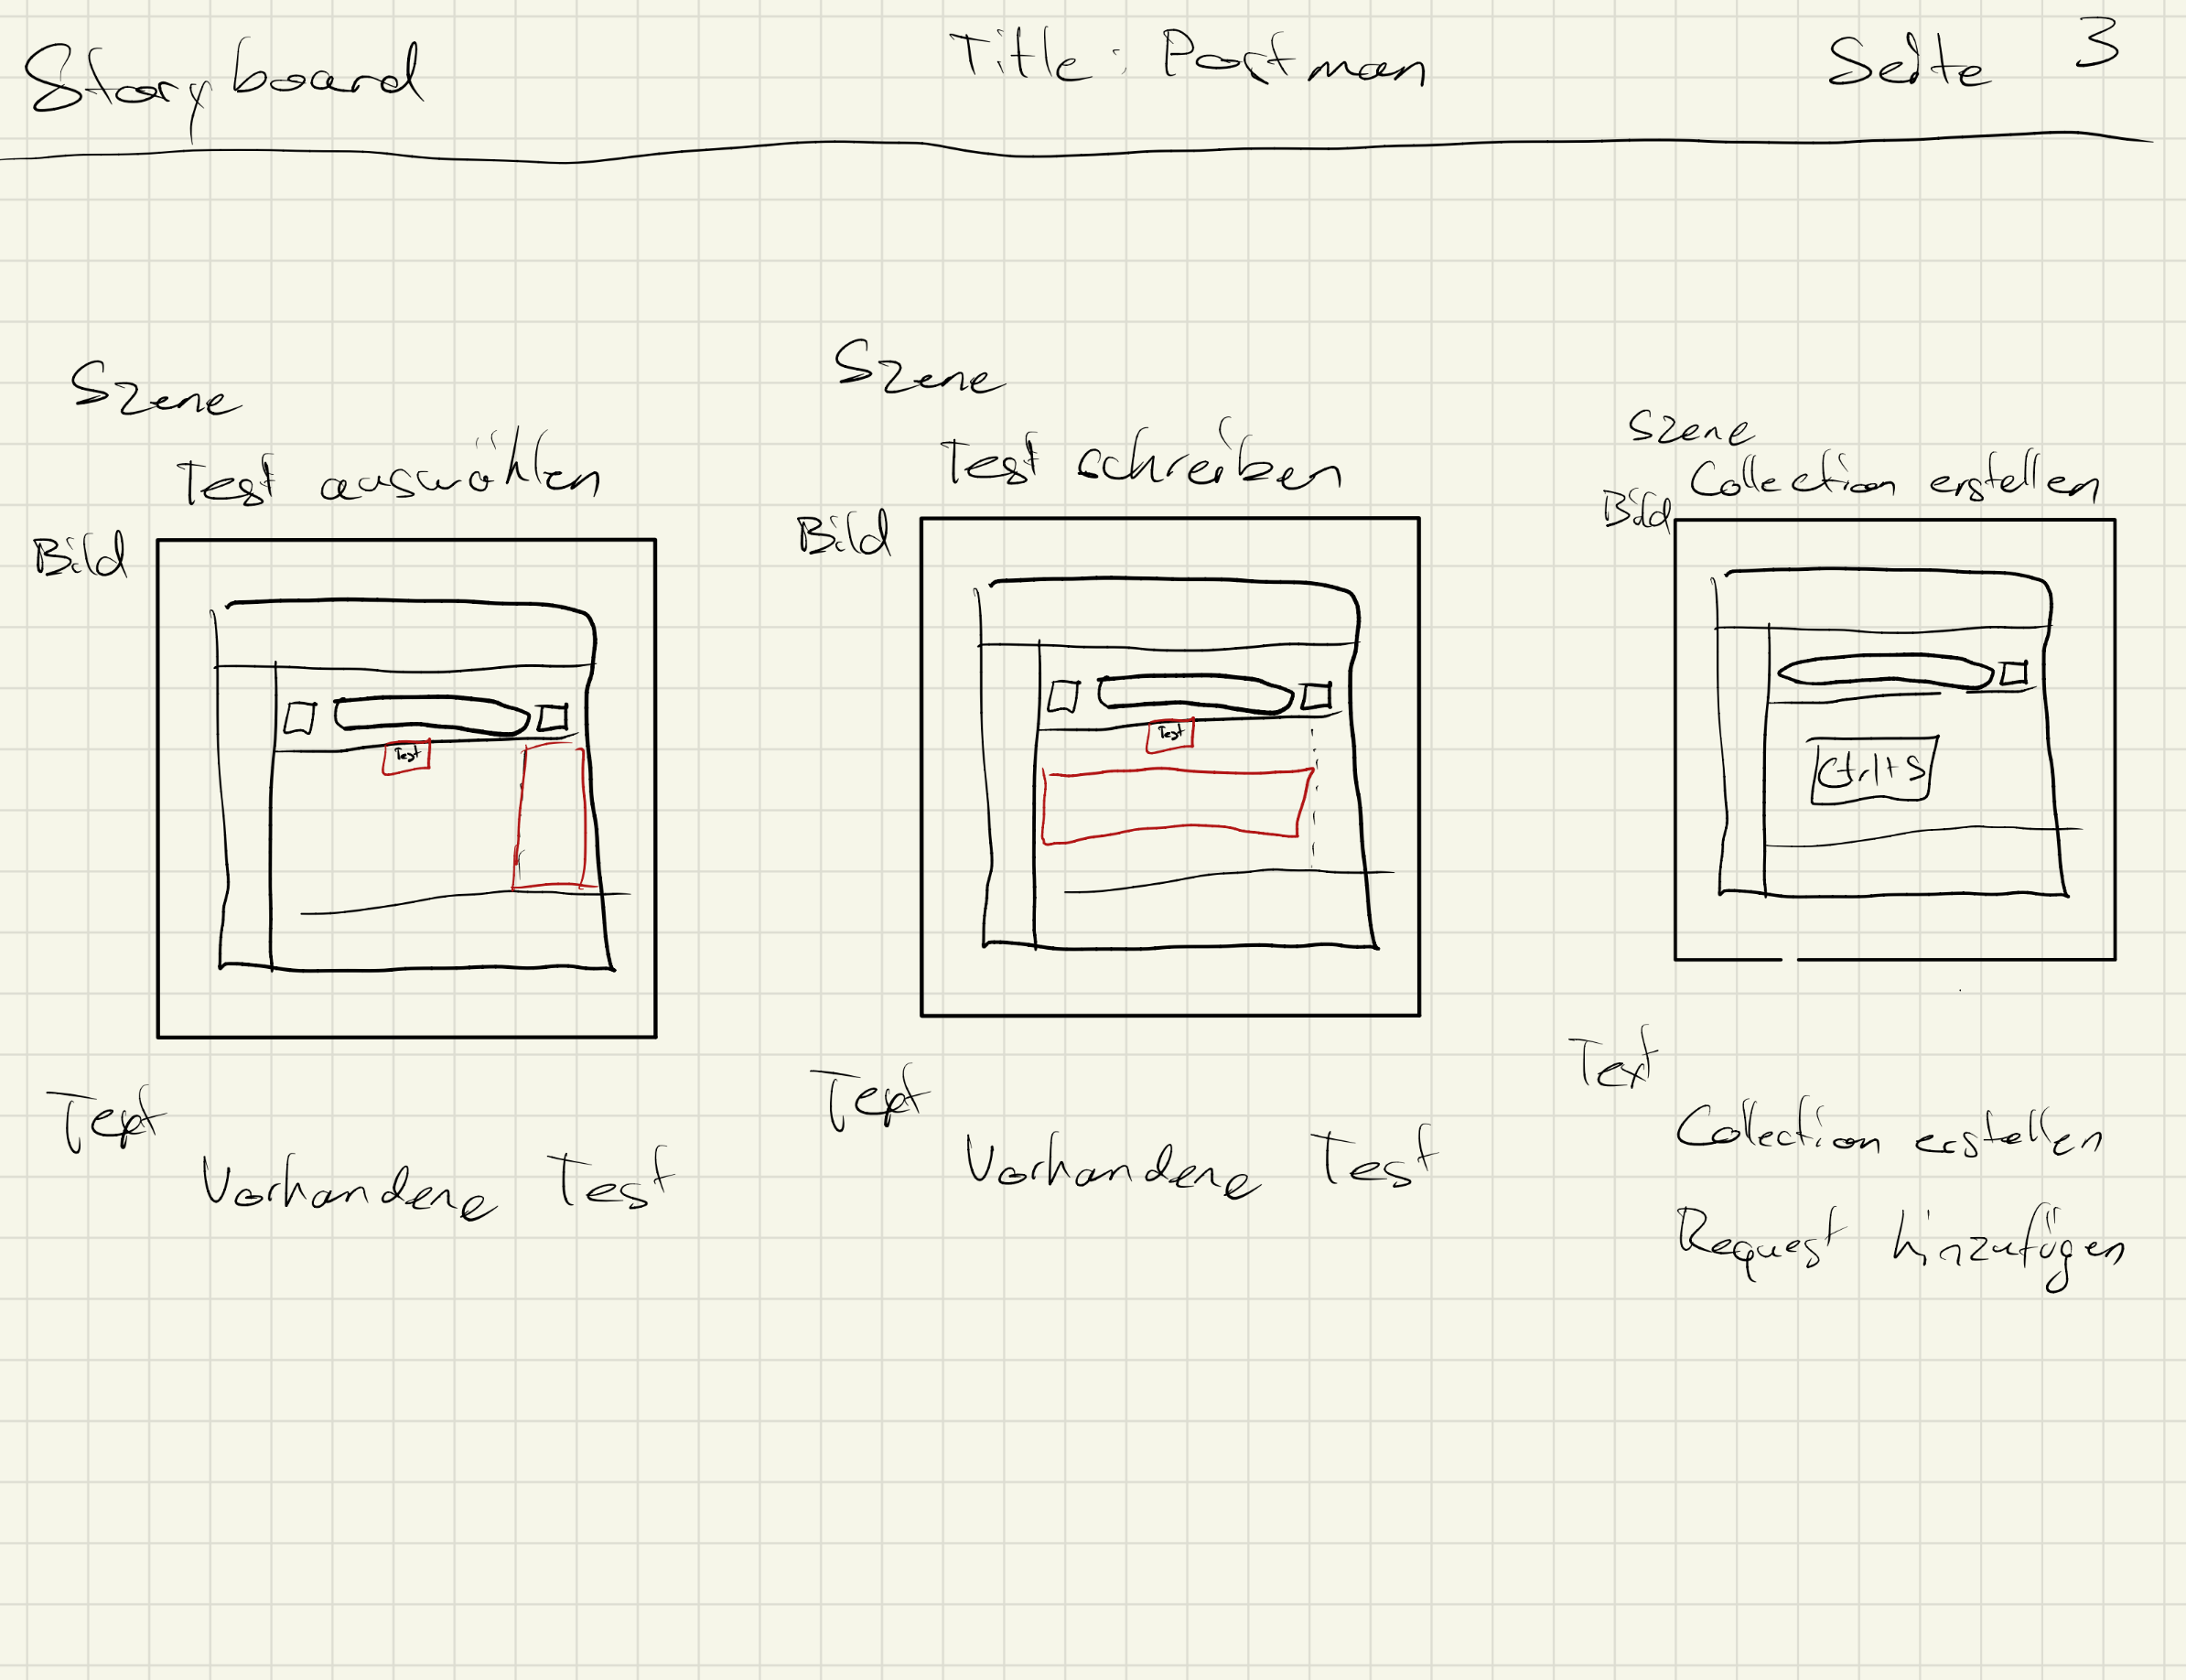 Storyboard Title: Postman Seite 3
Szene
Test auswählen
Bild
Test
Text
Vorhandene Test
Szene
Test schreiben
Bild
Test
Text
Vorhandene Test
Szene
Collection erstellen
Bild
Ctrl+S
Text
Collection erstellen
Request hinzufügen